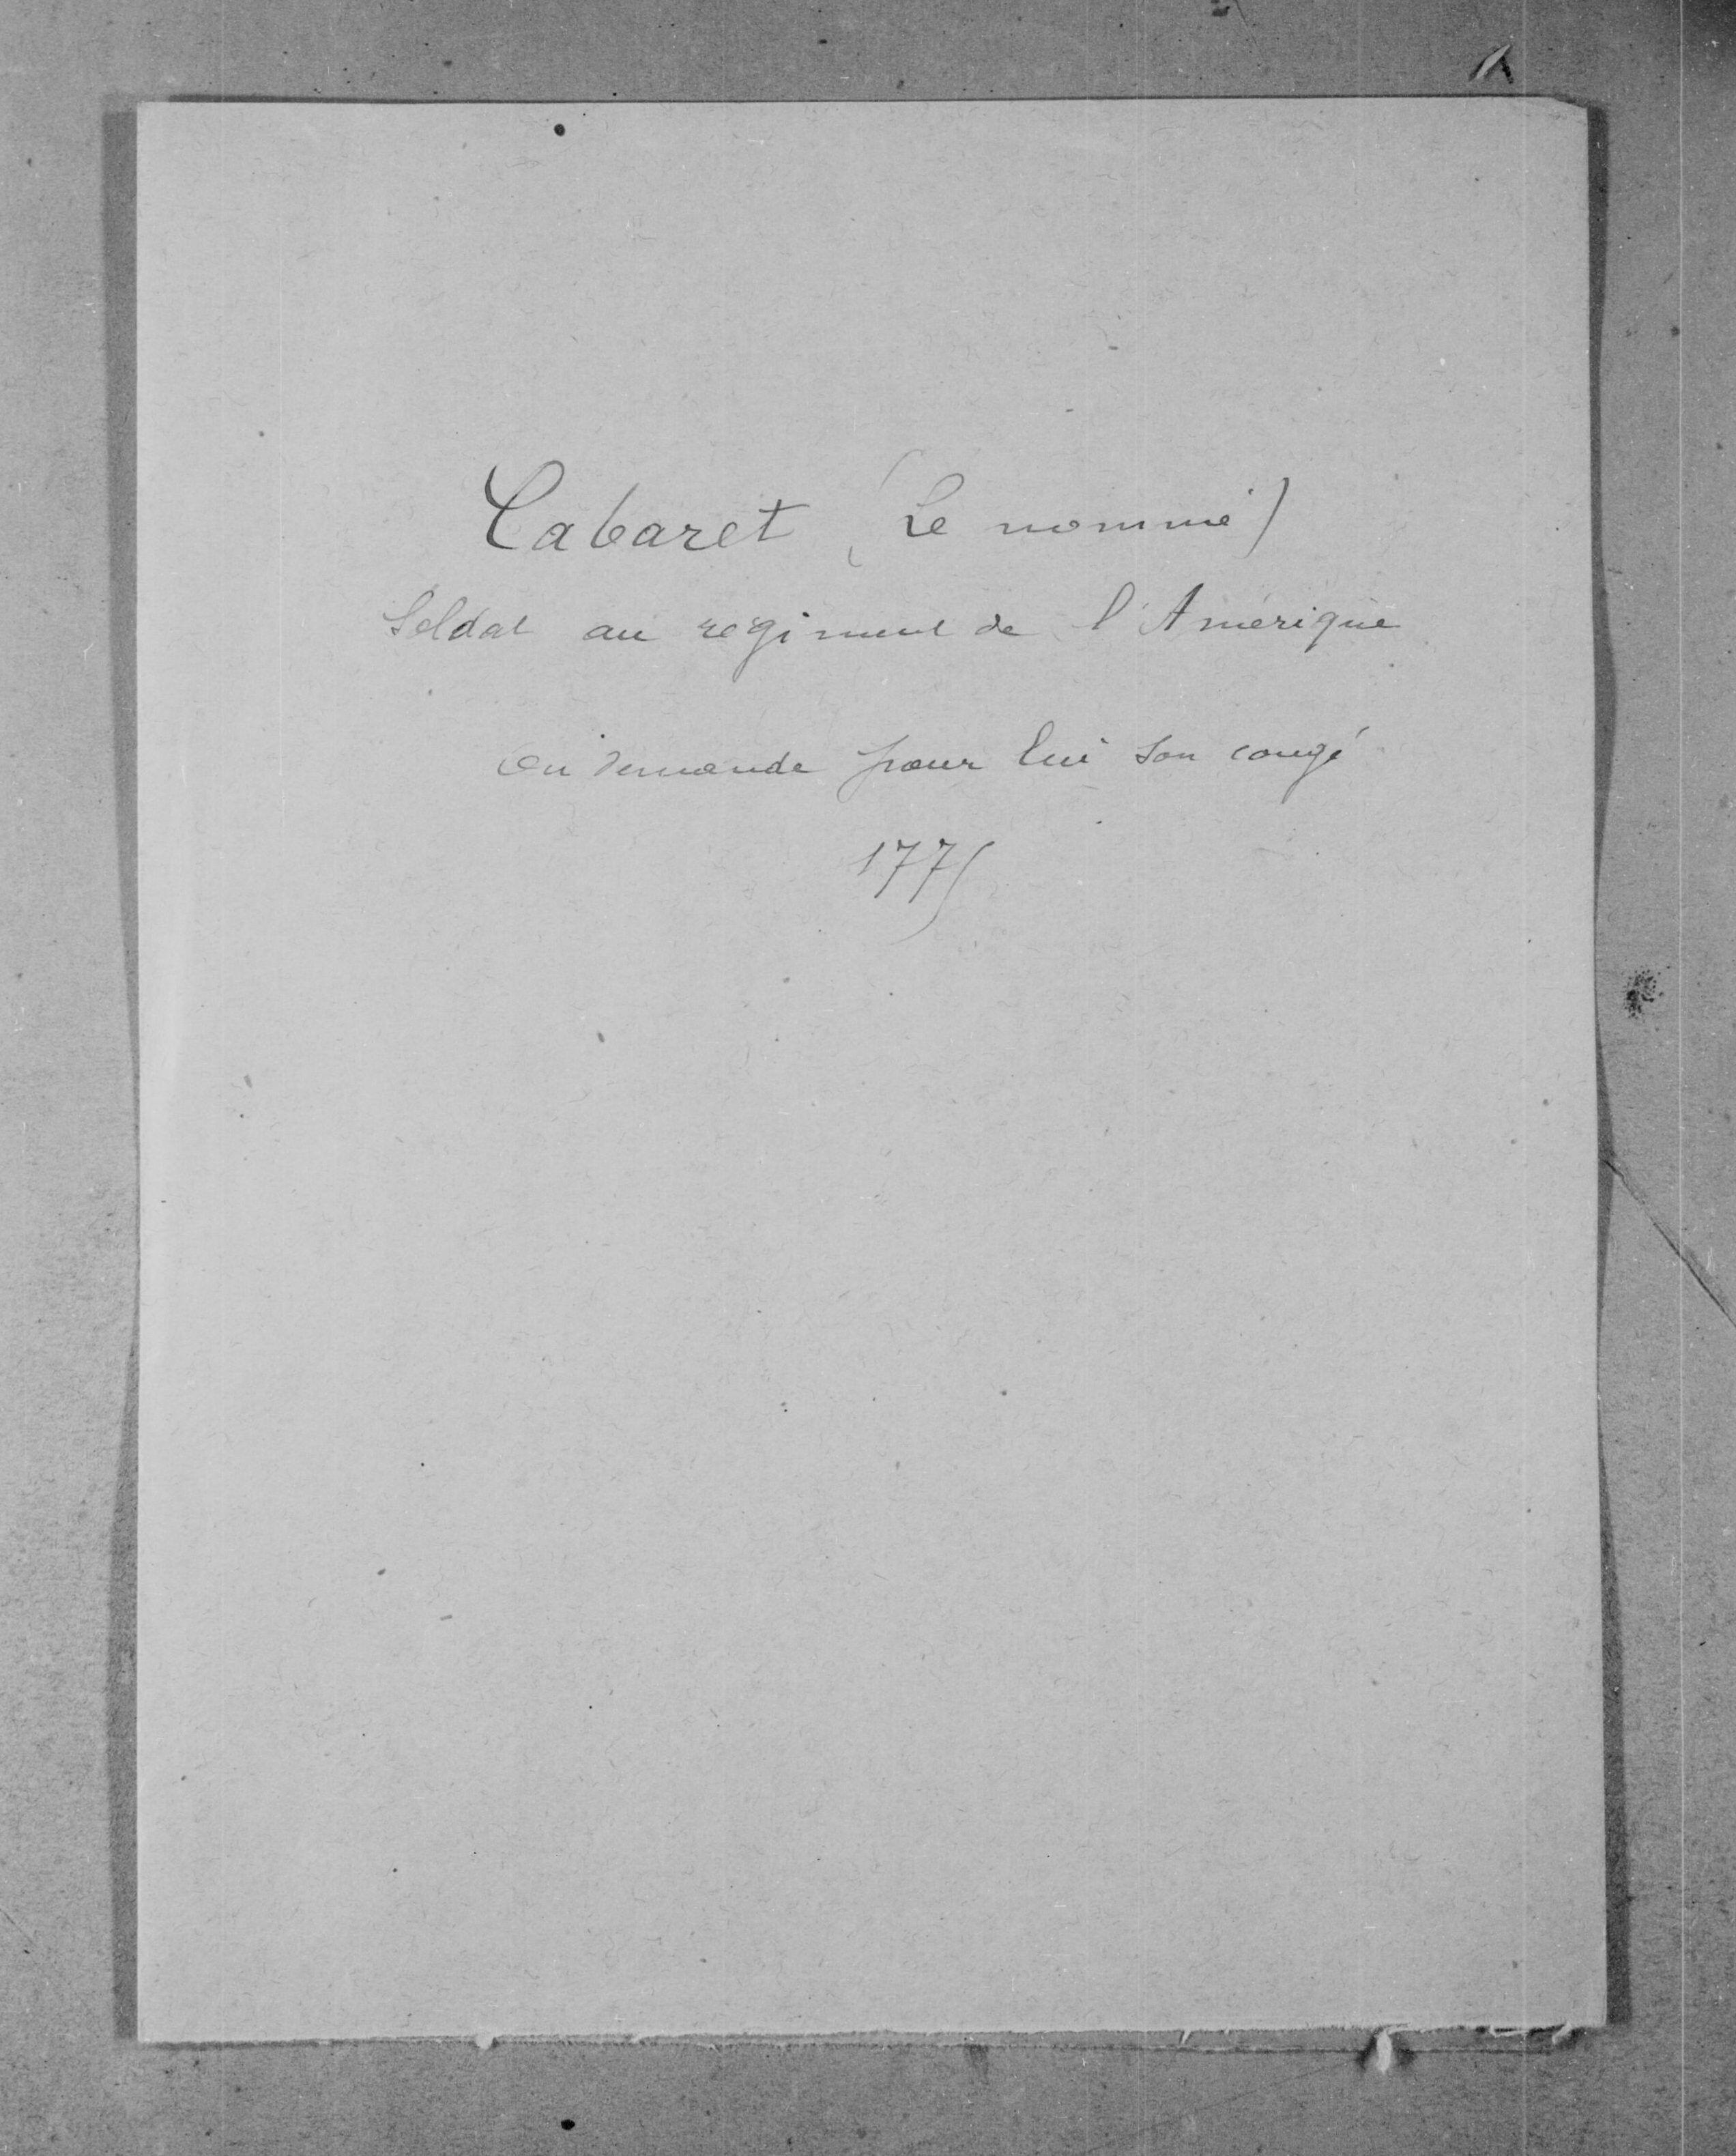 Cabaret (Le nommé)
Soldat au régiment de l'Amérique
on demande pour lui son congé
1775